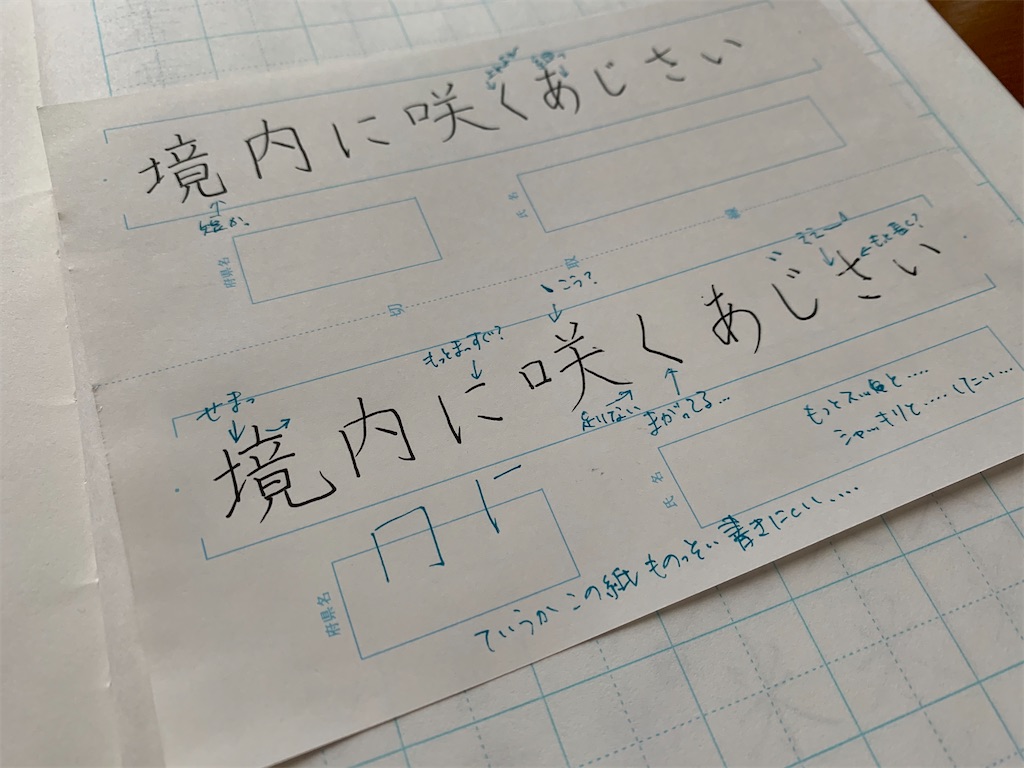 境内に咲くあじさい
府県名
氏名
切取線
こう?
もっとまっすぐ?
せまっ
境内に咲くあじさい
まがってる…
もっとスッと……
シャッキリと……したい…
府県名
氏名
ていうかこの紙ものっそい書きにくい……